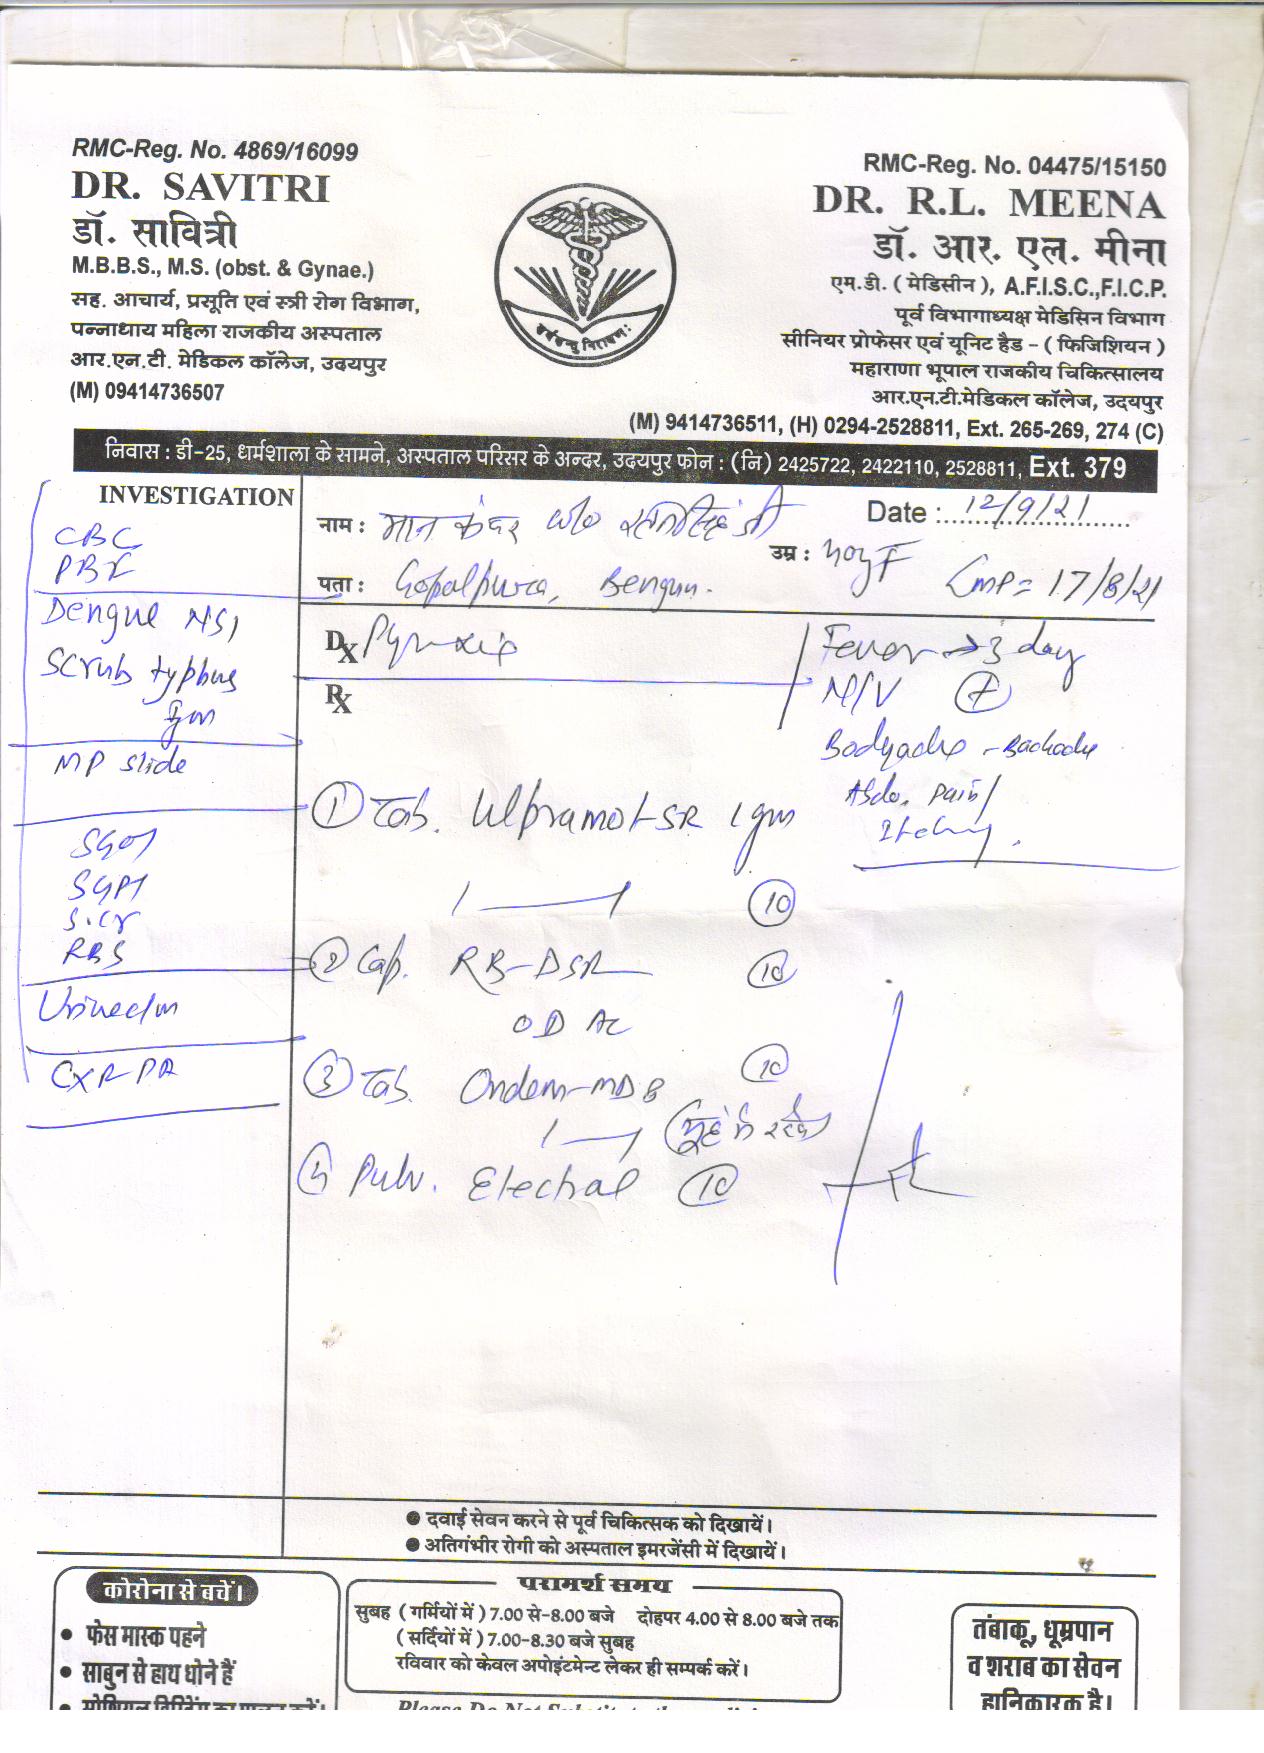 RMC-Reg. No. 4869/16099
DR. SAVITRI
डॉ. सावित्री
M.B.B.S., M.S. (obst. & Gynae.)
सह. आचार्य, प्रसूति एवं स्त्री रोग विभाग,
पन्नाधाय महिला राजकीय अस्पताल
आर.एन.टी. मेडिकल कॉलेज, उदयपुर
(M) 09414736507
RMC-Reg. No. 04475/15150
DR. R.L. MEENA
डॉ. आर. एल. मीना
एम.डी. ( मेडिसीन ), A.F.I.S.C.,F.I.C.P.
पूर्व विभागाध्यक्ष मेडिसिन विभाग
सीनियर प्रोफेसर एवं यूनिट हैड - ( फिजिशियन )
महाराणा भूपाल राजकीय चिकित्सालय
आर.एन.टी.मेडिकल कॉलेज, उदयपुर
(M) 9414736511, (H) 0294-2528811, Ext. 265-269, 274 (C)
निवास : डी-25, धर्मशाला के सामने, अस्पताल परिसर के अन्दर, उदयपुर फोन : (नि) 2425722, 2422110, 2528811, Ext. 379
INVESTIGATION
CBC
PBF
Dengue NS1
Scrub typhus
Igm
MP slide
SGOT
SGPT
S.Cr
RBS
Urine c/m
CXR-PA
नाम : मान कंवर w/o
Date : 12/9/21
उम्र : 40y F
पता : Gopalpura,
LMP= 17/8/21
Dx Pyrexia
Fever → 3 day
N/V +
Bodyache - Backache
Abdo. pain/
Itching.
Rx
① Tab. Ulpramol-SR 1gm
1 — 1 10
② Cap. RB-DSR 10
OD AC
③ Tab. Ondem-MD 8 10
1 — 1 (मुंह में रखें)
④ Pulv. Electral 10
● दवाई सेवन करने से पूर्व चिकित्सक को दिखायें।
● अतिगंभीर रोगी को अस्पताल इमरजेंसी में दिखायें।
कोरोना से बचें।
• फेस मास्क पहने
• साबुन से हाथ धोने हैं
परामर्श समय
सुबह ( गर्मियों में ) 7.00 से-8.00 बजे दोहपर 4.00 से 8.00 बजे तक
( सर्दियों में ) 7.00-8.30 बजे सुबह
रविवार को केवल अपोइंटमेन्ट लेकर ही सम्पर्क करें।
Please Do Not Substitute
तंबाकू, धूम्रपान
व शराब का सेवन
हानिकारक है।